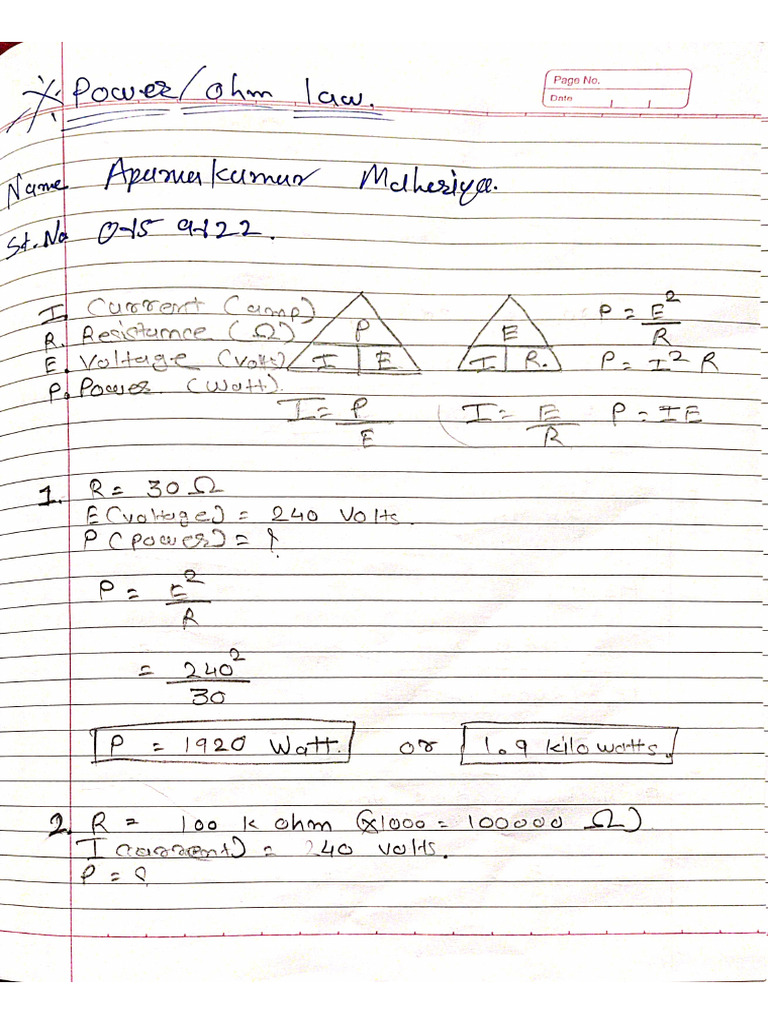 Power/ohm law.
Page No.
Date
Name Apurvakumar Maheriya.
St.No 0-15 9-122.
I. Current (amp)
R. Resistance (Ω)
E. Voltage (volts)
P. Power (watt).
P
I E
I = P/E
E
I R.
I = E/R
P = E²/R
P = I² R
P = IE
1. R = 30 Ω
E (voltage) = 240 volts.
P (power) = ?
P = E²/R
= 240²/30
P = 1920 Watt. or 1.9 kilowatts.
2. R = 100 k ohm (x1000 = 100000 Ω)
I (current) = 240 volts.
P = ?